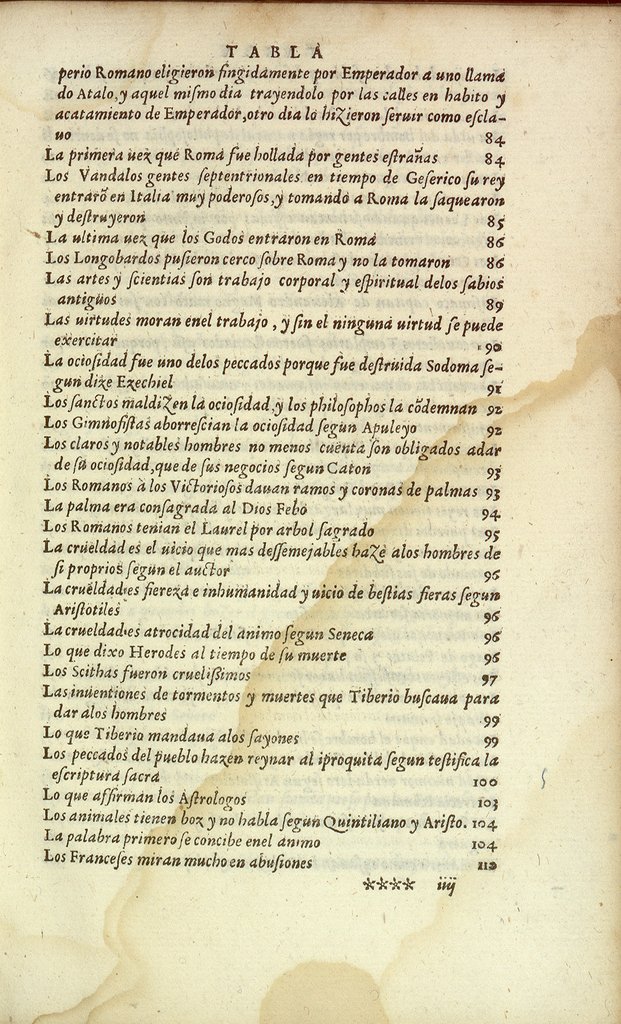 TABLA
perio Romano eligieron fingidamente por Emperador a uno llama
do Atalo, y aquel miſmo dia trayendolo por las calles en habito y
acatamiento de Emperador, otro dia lo hizieron ſeruir como eſcla-
uo 84
La primera uez que Roma fue hollada por gentes eſtrañas 84
Los Vandalos gentes ſeptentrionales en tiempo de Geſerico ſu rey
entrarõ en Italia muy poderoſos, y tomando a Roma la ſaquearon
y deſtruyeron 85
La ultima uez que los Godos entraron en Roma 86
Los Longobardos puſieron cerco ſobre Roma y no la tomaron 86
Las artes y ſcientias ſon trabajo corporal y eſpiritual delos ſabios
antigüos 89
Las uirtudes moran enel trabajo, y ſin el ninguna uirtud ſe puede
exercitar 90
La ocioſidad fue uno delos peccados porque fue deſtruida Sodoma ſe-
gun dize Ezechiel 91
Los ſanctos maldizen la ocioſidad, y los philoſophos la cõdemnan 92
Los Gimnoſiſtas aborreſcian la ocioſidad ſegun Apuleyo 92
Los claros y notables hombres no menos cuenta ſon obligados adar
de ſu ocioſidad, que de ſus negocios ſegun Caton 93
Los Romanos à los Victorioſos dauan ramos y coronas de palmas 93
La palma era conſagrada al Dios Febo 94
Los Romanos tenian el Laurel por arbol ſagrado 95
La crueldad es el uicio que mas deſſemejables haze alos hombres de
ſi proprios ſegun el auctor 96
La crueldad es fiereza e inhumanidad y uicio de beſtias fieras ſegun
Ariſtotiles 96
La crueldad es atrocidad del animo ſegun Seneca 96
Lo que dixo Herodes al tiempo de ſu muerte 96
Los Scithas fueron crueliſsimos 97
Las inuentiones de tormentos y muertes que Tiberio buſcaua para
dar alos hombres 99
Lo que Tiberio mandaua alos ſayones 99
Los peccados del pueblo hazen reynar al iproquita ſegun teſtifica la
eſcriptura ſacra 100
Lo que affirman los Aſtrologos 103
Los animales tienen boz y no habla ſegun Quintiliano y Ariſto. 104
La palabra primero ſe concibe enel animo 104
Los Franceſes miran mucho en abuſiones 112
**** iiij